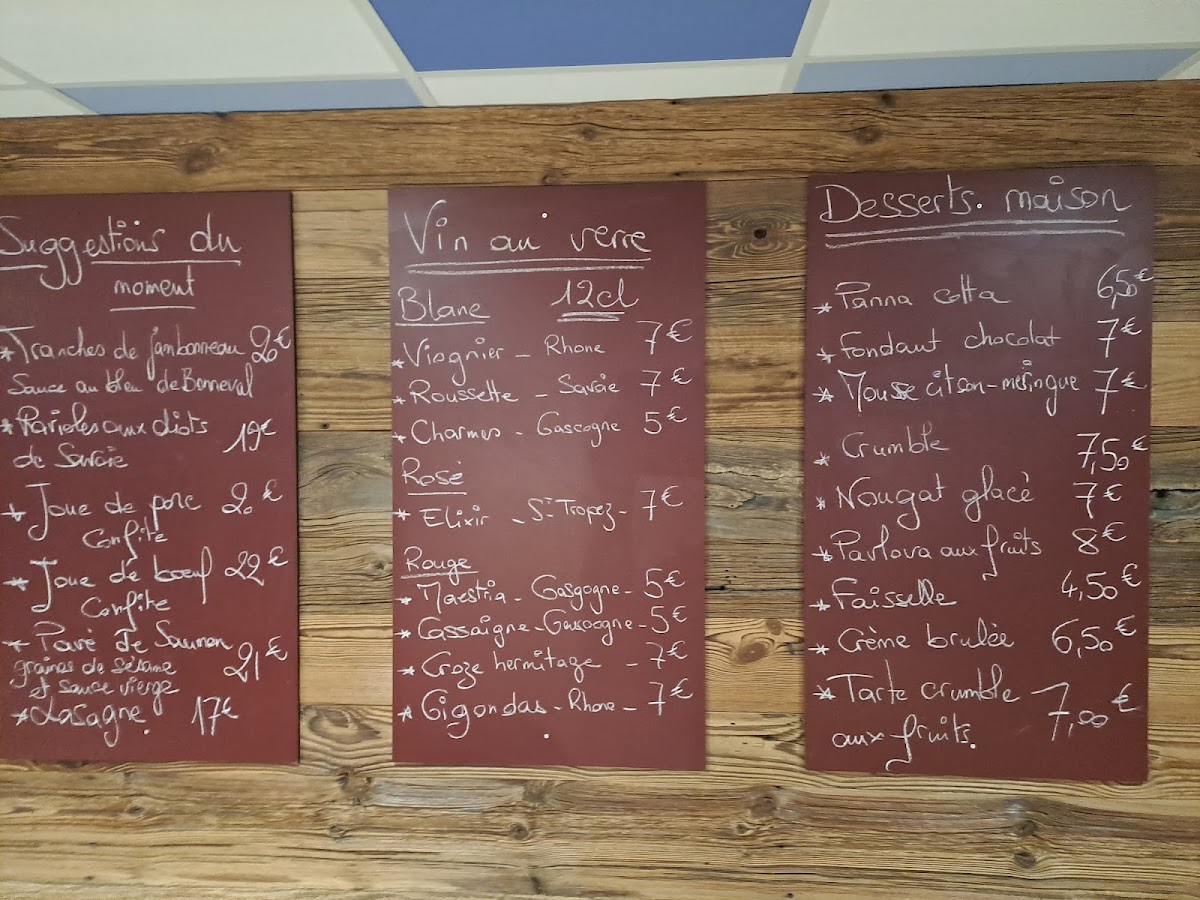 Suggestions du
moment
* Tranches de jambonneau 20€
Sauce au bleu de Bonneval
* Ravioles aux diots 19€
de Savoie
* Joue de porc 20€
Confite
* Joue de boeuf 22€
Confite
* Pavé de Saumon
graines de sésame 21€
et sauce vierge
* Lasagne. 17€
Vin au verre
Blanc 12cl
* Viognier - Rhone 7€
* Roussette - Savoie 7€
* Charmes - Gascogne 5€
Rosé
* Elixir - St Tropez - 7€
Rouge
* Maestria - Gasgogne - 5€
* Cassaigne - Gascogne - 5€
* Croze hermitage - 7€
* Gigondas - Rhone - 7€
Desserts. maison
* Panna cotta 6,50€
* Fondant chocolat 7€
* Mousse citron-meringue 7€
* Crumble 7,50€
* Nougat glacé 7€
* Pavlova aux fruits 8€
* Faisselle 4,50€
* Crème brulée 6,50€
* Tarte crumble 7,00€
aux fruits.